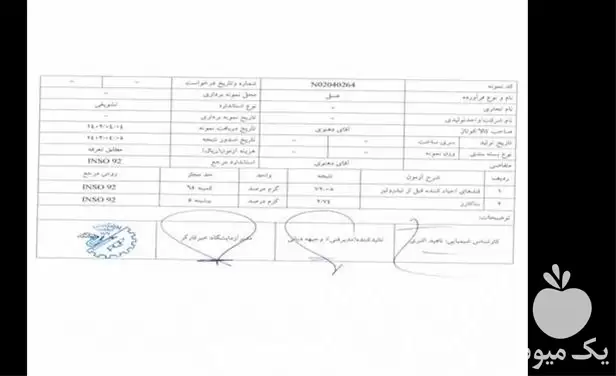 کد نمونه N02040264 شماره و تاریخ درخواست - -
نام و نوع فرآورده عسل محل نمونه برداری -
نام تجاری - نوع استاندارد تشویقی
نام شرکت/واحد تولیدی - تاریخ نمونه برداری -
صاحب کالا آقای دهنوی تاریخ دریافت نمونه ۱۴۰۲/۰۴/۰۴
تاریخ تولید - سری ساخت - تاریخ صدور نتیجه
نوع بسته بندی - وزن نمونه - هزینه آزمون(ریال) مطابق تعرفه
متقاضی آقای دهنوی استاندارد مرجع INSO 92
ردیف شرح آزمون نتیجه واحد حد مجاز روش مرجع
۱ قندهای احیاء کننده قبل از هیدرولیز گرم درصد کمینه ۶۵ INSO 92
۲ ساکارز ۲/۷۴ گرم درصد بیشینه ۵ INSO 92
توضیحات:
کارشناس شیمیایی: ناهید اکبری تائیدکننده(مدیرفنی): وجیهه مدیر آزمایشگاه:
یک میوه